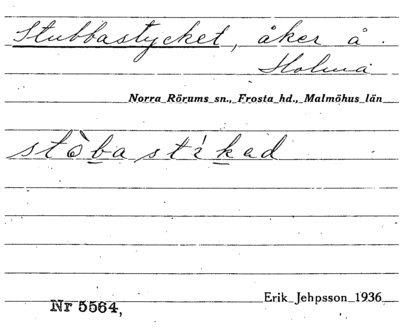 Stubbastycket, åker å
Holma
Norra Rörums sn., Frosta hd., Malmöhus län
stò̀ba sti̇́kad
Erik Jehpsson 1936
Nr 5564,